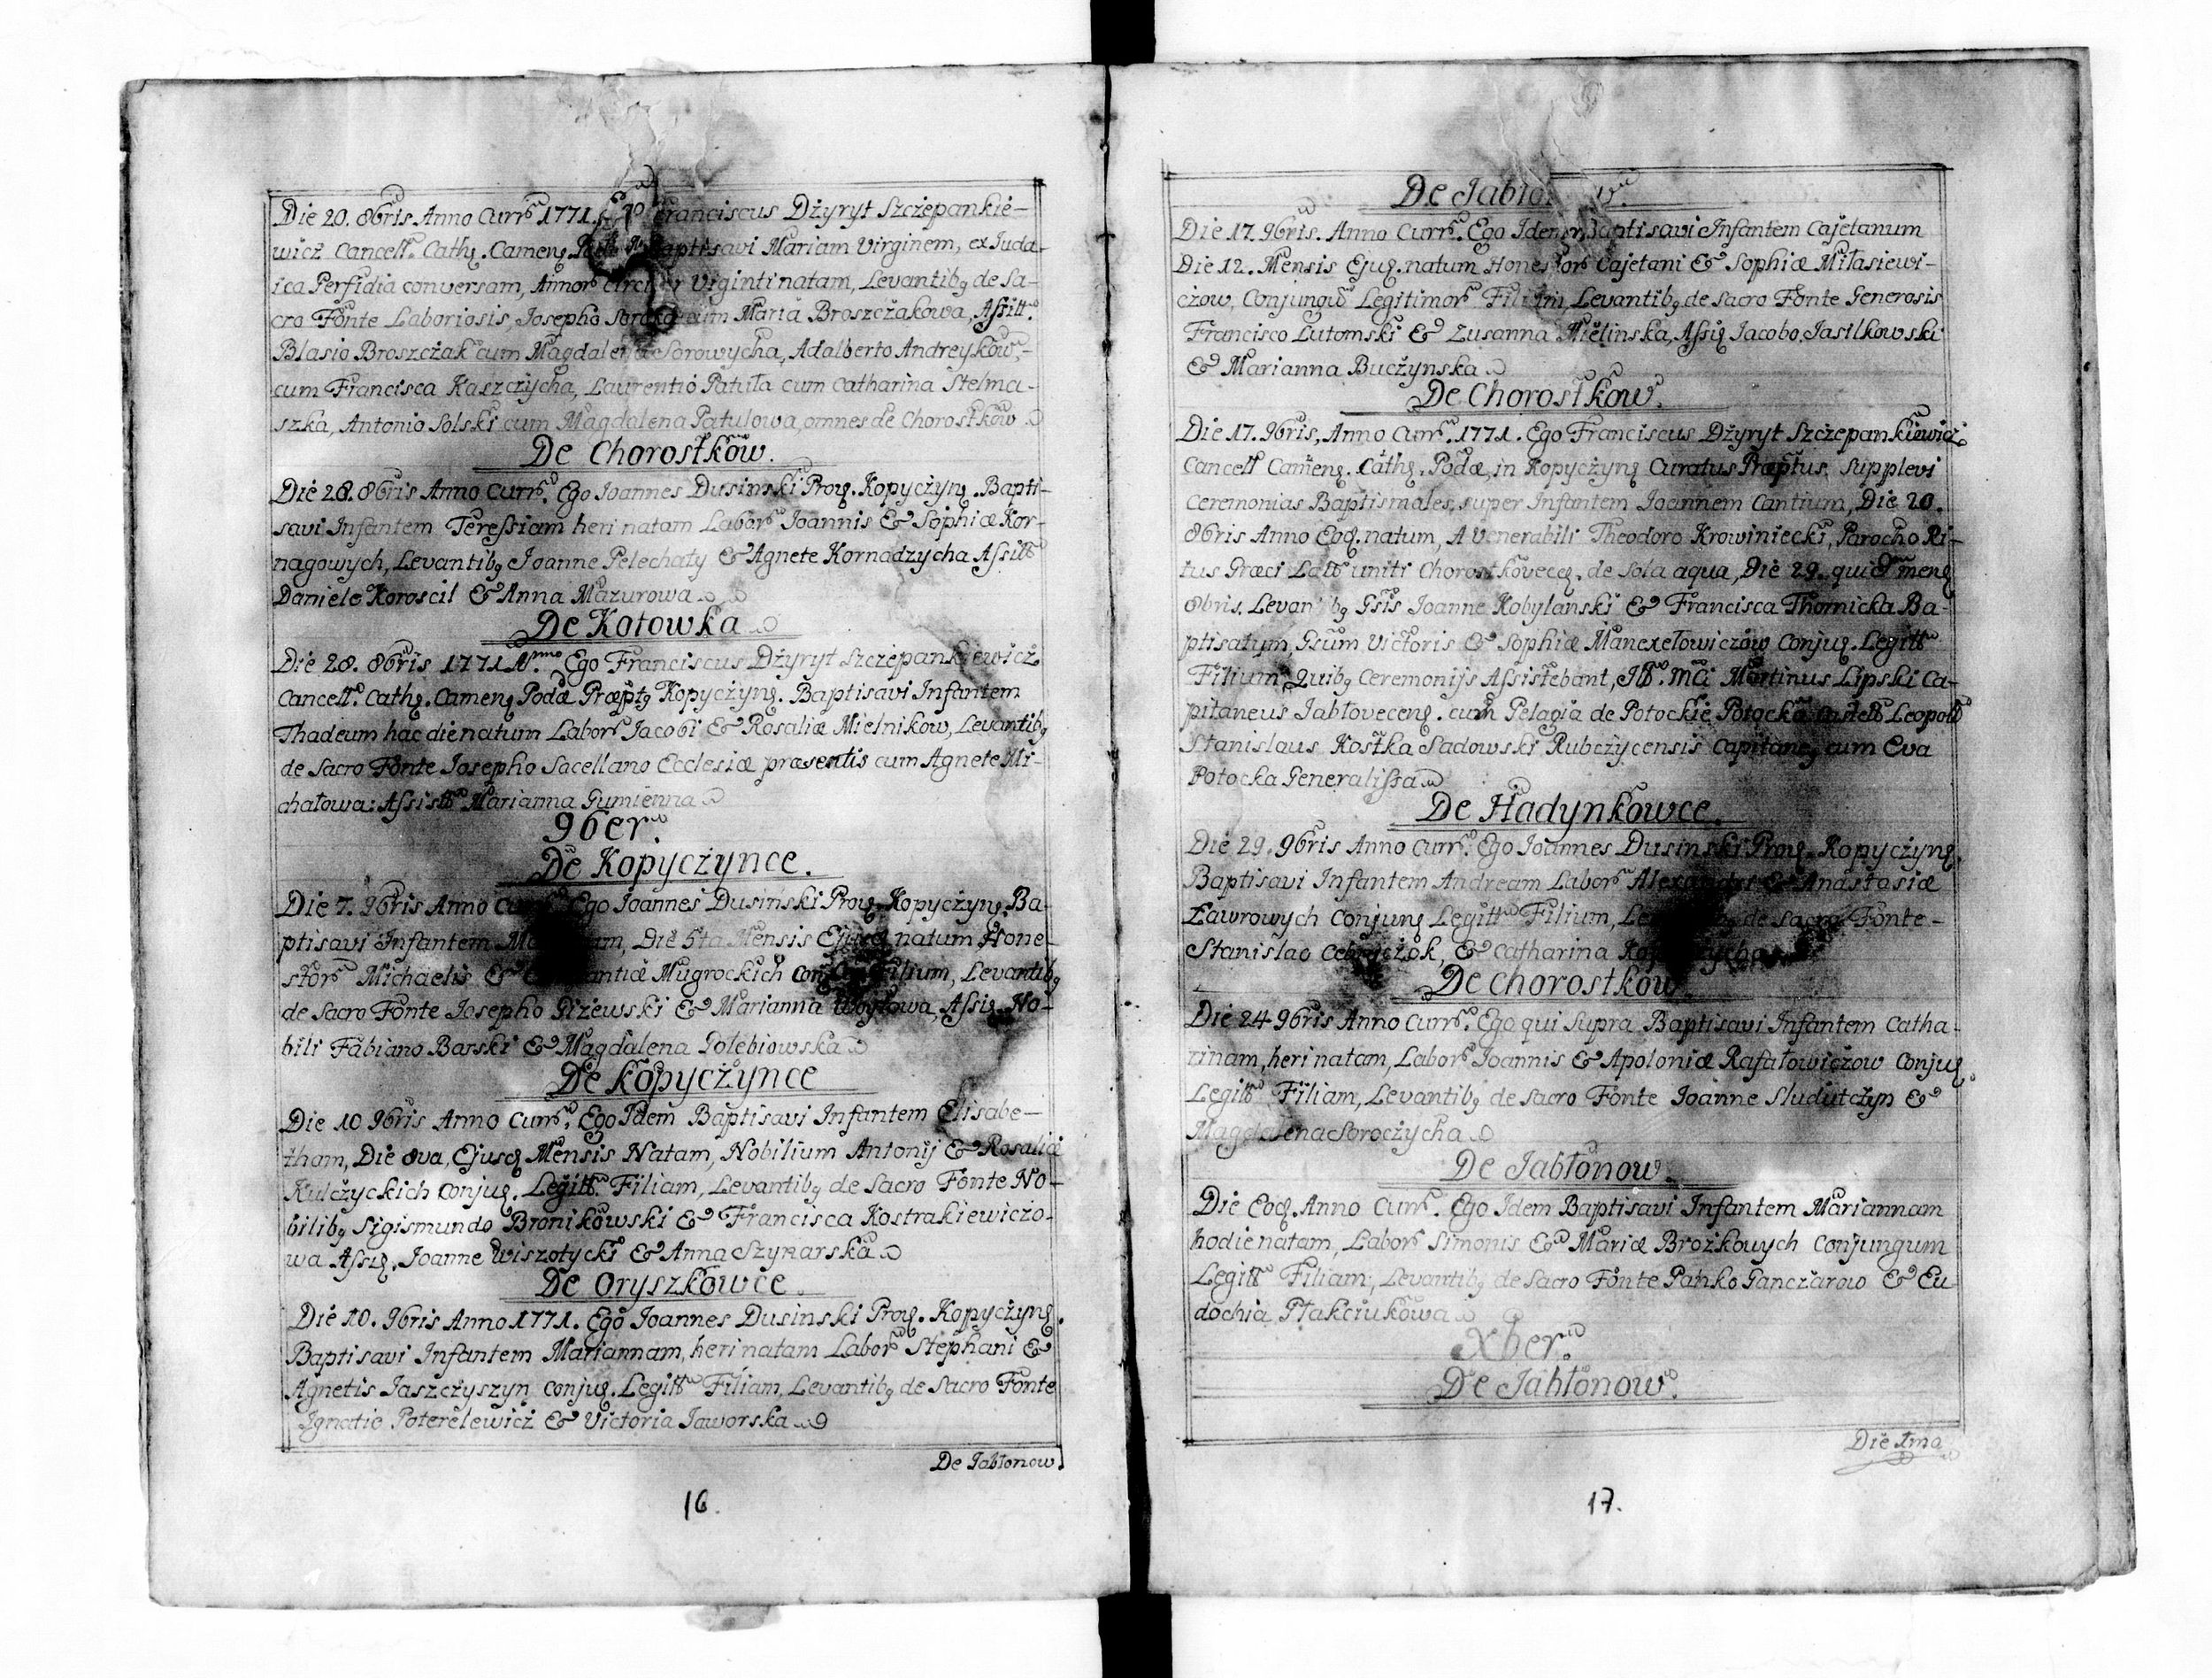 Die 20. 8bris. Anno Curr. 1771. Ego Franciscus Dżyryt Szczepankie-
wicz Cancell. Cath. Camen. Baptisavi Mariam Virginem, ex Juda-
ica Perfidia conversam, Annor circiter Viginti natam, Levantib, de Sa-
cro Fonte Laboriosis, Josepho cum Maria Broszczakowa, Assitt.
Blasio Broszczak cum Magdalena Sorowycha, Adalberto Andreyków,
cum Francisca Kaszczycha, Laurentio Patuła cum Catharina Stelma-
szka, Antonio Solski cum Magdalena Patulowa, omnes de Chorostków
De Chorostków.
Die 28. 8bris Anno Curr. Ego Joannes Dusinski Proq. Kopyczyn. Bapti-
savi Infantem Teressiam heri natam Labor Joannis & Sophiæ Kor-
nagowych, Levantib, Joanne Pelechaty & Agnete Kornadzycha Assitt
Daniele Koroscil & Anna Mazurowa
De Kotowka
Die 28. 8bris 1771 A. Ego Franciscus Dżyryt Szczepankiewicz
Cancell. Cath. Camen, Podæ Præpt, Kopyczyn. Baptisavi Infantem
Thadeum hac die natum Labor Jacobi & Rosaliæ Mielnikow, Levantib,
de Sacro Fonte Josepho Sacellano Ecclesiæ præsentis cum Agnete Mi-
chałowa: Assistt Marianna Gumienna
9ber.
De Kopyczynce.
Die 7. 9bris Anno Ego Joannes Dusinski Proq. Kopyczyn. Ba-
ptisavi Infantem Die 5ta Mensis Ejusq natum Hone-
stor Michaelis & Mugrockich Filium, Levantib,
de Sacro Fonte Josepho Giżewski & Marianna Woytowa, Assis. No-
bili Fabiano Barski & Magdalena Gołebiowska
De Kopyczynce
Die 10 9bris Anno Curr. Ego Idem Baptisavi Infantem Elisabe-
tham, Die 8va, Ejusq Mensis Natam, Nobilium Antonij & Rosaliæ
Kulczyckich Conjug. Legitt. Filiam, Levantib, de Sacro Fonte No-
bilib, Sigismundo Bronikowski & Francisca Kostrakiewiczo-
wa Assis, Joanne Wiszotycki & Anna Szynarska
De Oryszkowce.
Die 10. 9bris Anno 1771. Ego Joannes Dusinski Proq. Kopyczyn.
Baptisavi Infantem Mariannam, heri natam Labor Stephani &
Agnetis Jaszczyszyn Conjug. Legitt Filiam, Levantib, de Sacro Fonte
Ignatio Poterelewicz & Victoria Jaworska
De Jabłonow.
16.
De
Die 17. 9bris. Anno Curr. Ego Idem Baptisavi Infantem Cajetanum
Die 12. Mensis Ejuq. natum Cajetani & Sophiæ Miłasiewi-
czow, Conjungum Legitimor Filium, Levantib, de Sacro Fonte Generosis
Francisco Lutomski & Zusanna Mielinska, Assis Jacobo Jasilkowski
& Marianna Buczynska
De Chorostkow.
Die 17. 9bris, Anno Curr. 1771. Ego Franciscus Dżyryt Szczepankiewicz
Cancell Camen. Cath. Podæ, in Kopyczyn, Curatus Præptus, Supplevi
Ceremonias Baptismales, super Infantem Joannem Cantium, Die 20.
8bris Anno Eoq. natum, A Venerabili Theodoro Krowiniecki, Parocho Ri-
tus Græci Latt uniti Chorostkovecen. de Sola aqua, Die 29. mens
8bris, Levantib, Gsis Joanne Kobylanski & Francisca Thornicka Ba-
ptisatum, Gsum Victoris & Sophiæ Manczełowiczów Conjug. Legitt
Filium, Quib, Ceremonijs Assistebant, Martinus Lipski Ca-
pitaneus Jabłovecens. cum Pelagia de Potockie Potocka Leopolt
Stanislaus Kostka Sadowski Rubczycensis Capitaneq cum Eva
Potocka Generalissa
De Hadynkowce.
Die 29. 9bris Anno Curr. Ego Joannes Dusinski Proq. Kopyczyn.
Baptisavi Infantem Andream Labor Alexandri & Anastasiæ
Ławrowych Conjung Legitt Filium, de Sacro Fonte
Stanislao & Catharina
De Chorostkow
Die 24 9bris Anno Curr. Ego qui Supra Baptisavi Infantem Catha-
rinam, heri natam, Labor Joannis & Apoloniæ Rafałowiczow Conjug.
Legitt Filiam, Levantib, de Sacro Fonte Joanne Sludutczyn &
Magdalena Soroczycha
De Jabłonow.
Die Eoq. Anno Curr. Ego Idem Baptisavi Infantem Mariannam
hodie natam, Labor Simonis & Mariæ Brożkowych Conjungum
Legitt Filiam, Levantib, de Sacro Fonte Pańko Ganczarow & Eu
dochia Ptakciukowa
Xber.
De Jabłonow.
Die 1ma
17.